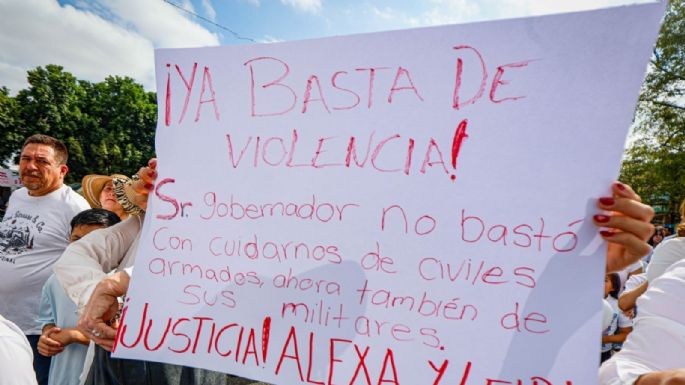 ¡YA BASTA DE
VIOLENCIA!
Sr. gobernador no bastó
Con cuidarnos de civiles
armados, ahora también de
sus militares.
¡JUSTICIA! ALEXA Y